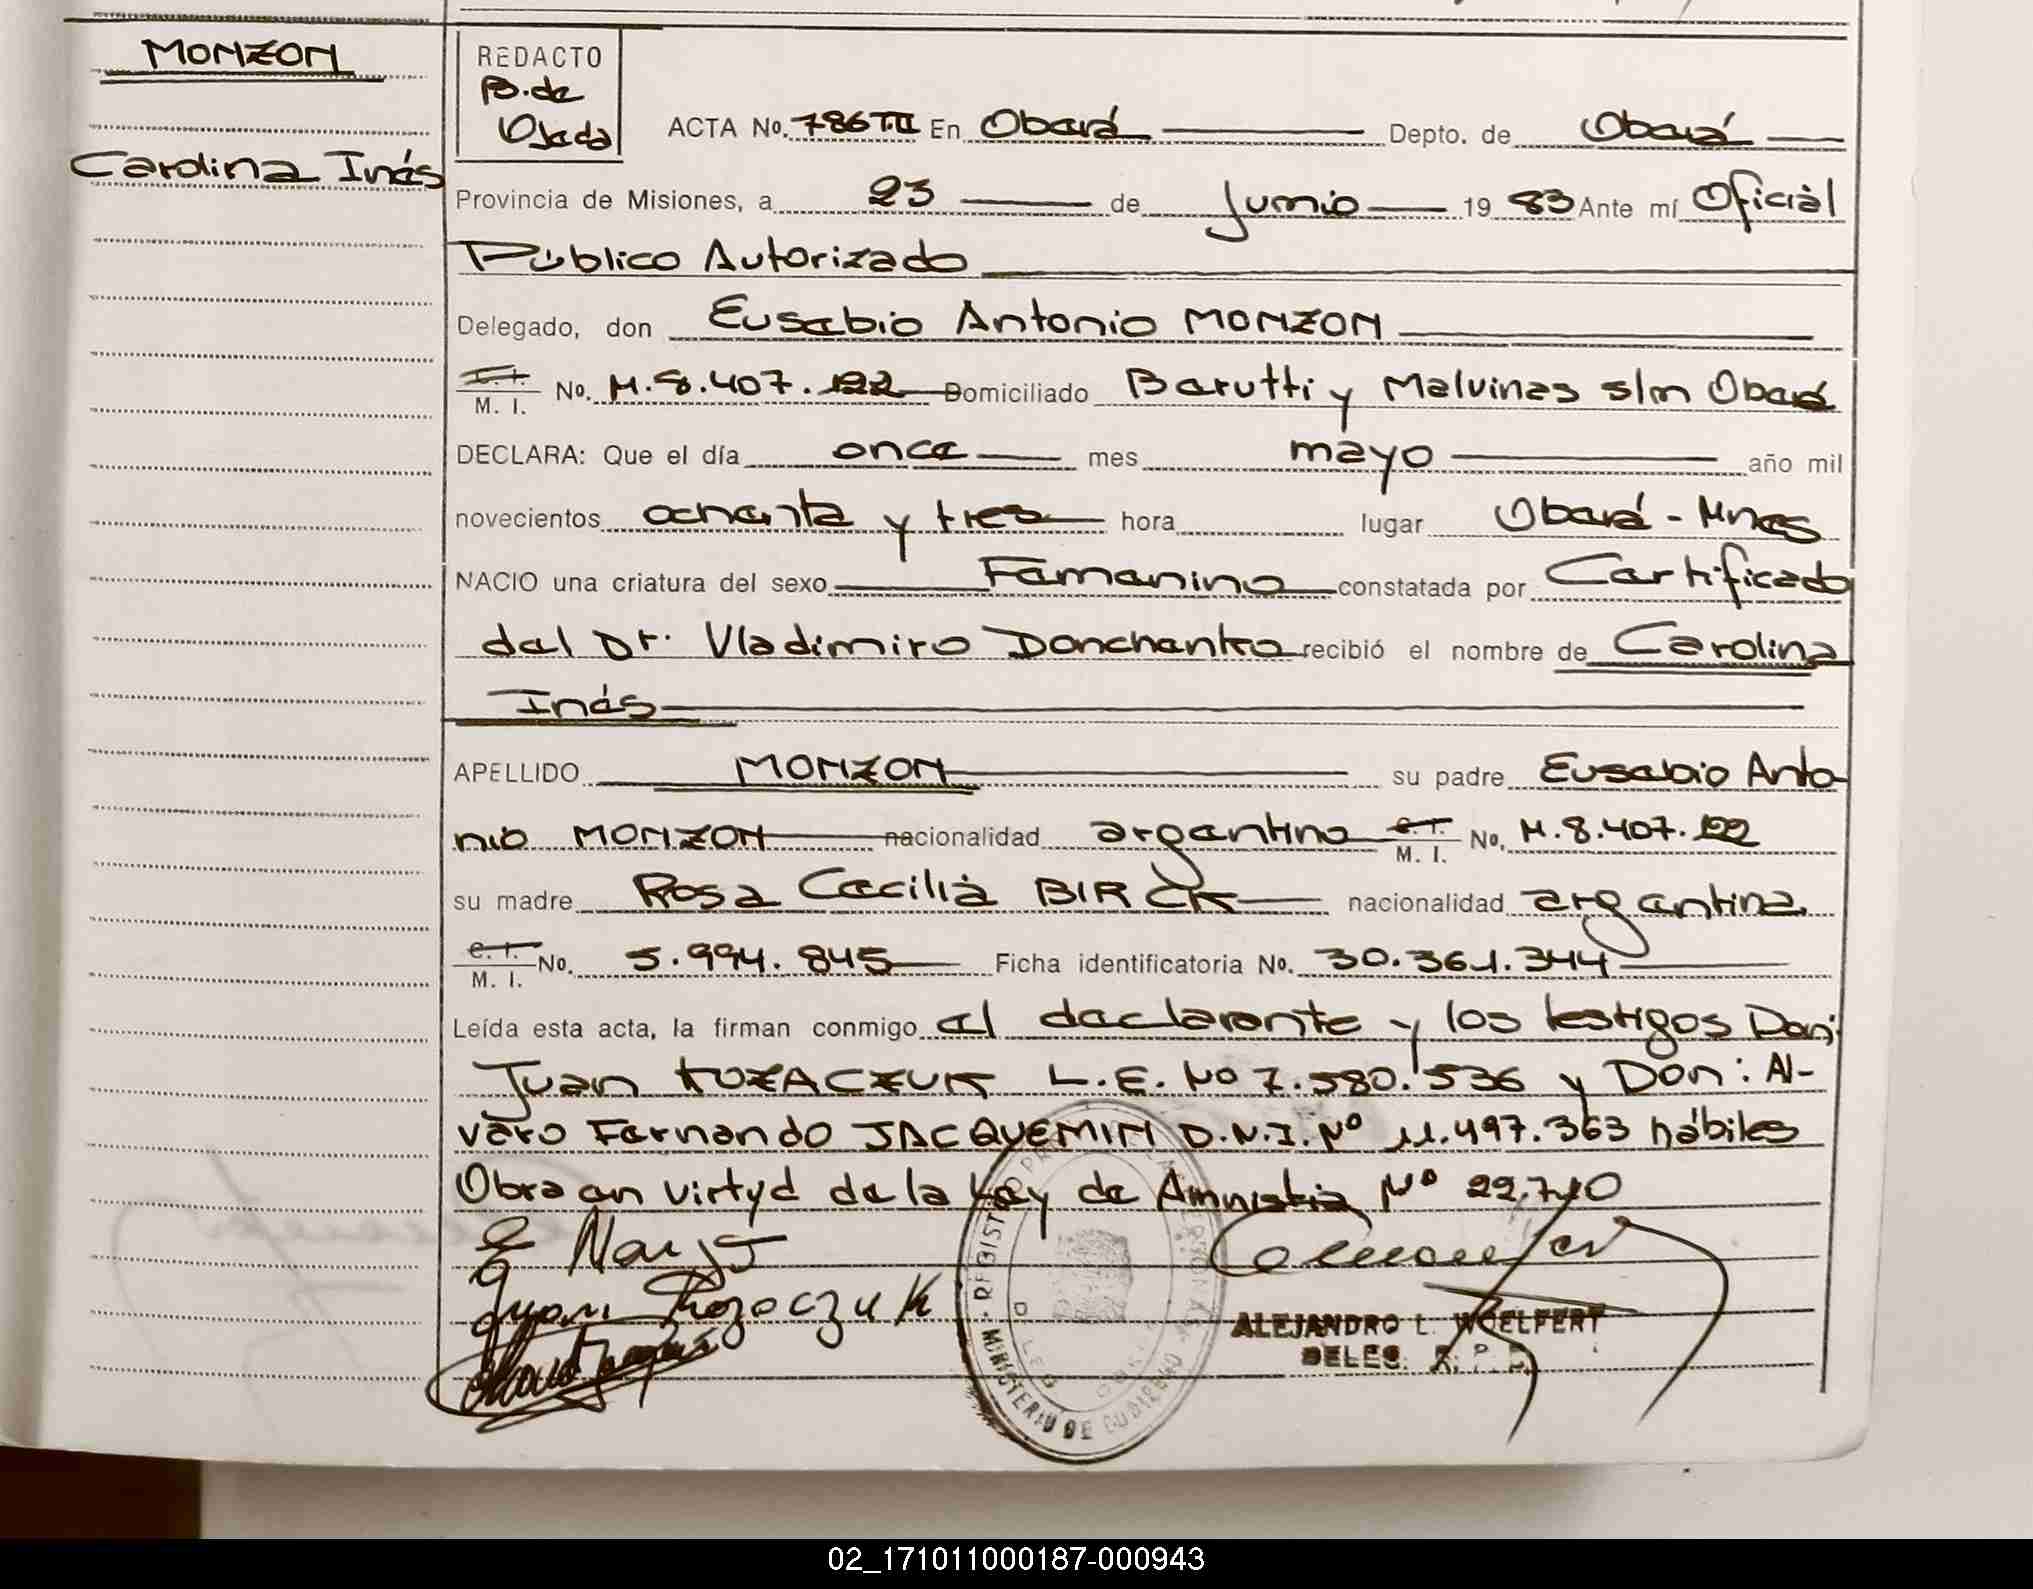 MONZON
Carolina Inés
REDACTO
B. de
Ojeda
ACTA No. 786 T.II En Oberá Depto. de Oberá
Provincia de Misiones, a 23 de Junio 19 83 Ante mí Oficial
Público Autorizado
Delegado, don Eusebio Antonio MONZON
C. I. M. I. No. M. 8.407.122 Domiciliado Berutti y Malvinas s/n Oberá
DECLARA: Que el día once mes mayo año mil
novecientos ochenta y tres hora lugar Oberá - Mnes
NACIO una criatura del sexo Femenino constatada por Certificado
del Dr. Vladimiro Donchenko recibió el nombre de Carolina
Inés
APELLIDO MONZON su padre Eusebio Anto
nio MONZON nacionalidad argentino C. I. M. I. No. M. 8.407.122
su madre Rosa Cecilia BIRCK nacionalidad argentina
C. I. M. I. No. 5.994.845 Ficha identificatoria No. 30.361.344
Leída esta acta, la firman conmigo el declarante y los testigos Don:
Juan KOZACZUK L.E. Nº 7.580.536 y Don: Al-
varo Fernando JACQUEMIN D.N.I. Nº 11.497.363 hábiles
Obra en virtyd de la Ley de Amnistia Nº 22.710
Juan Kozaczuk
REGISTRO
MINISTERIO DE GOBIERNO
ALEJANDRO L. WOELFERT
DELEG. R. P.
02_171011000187-000943